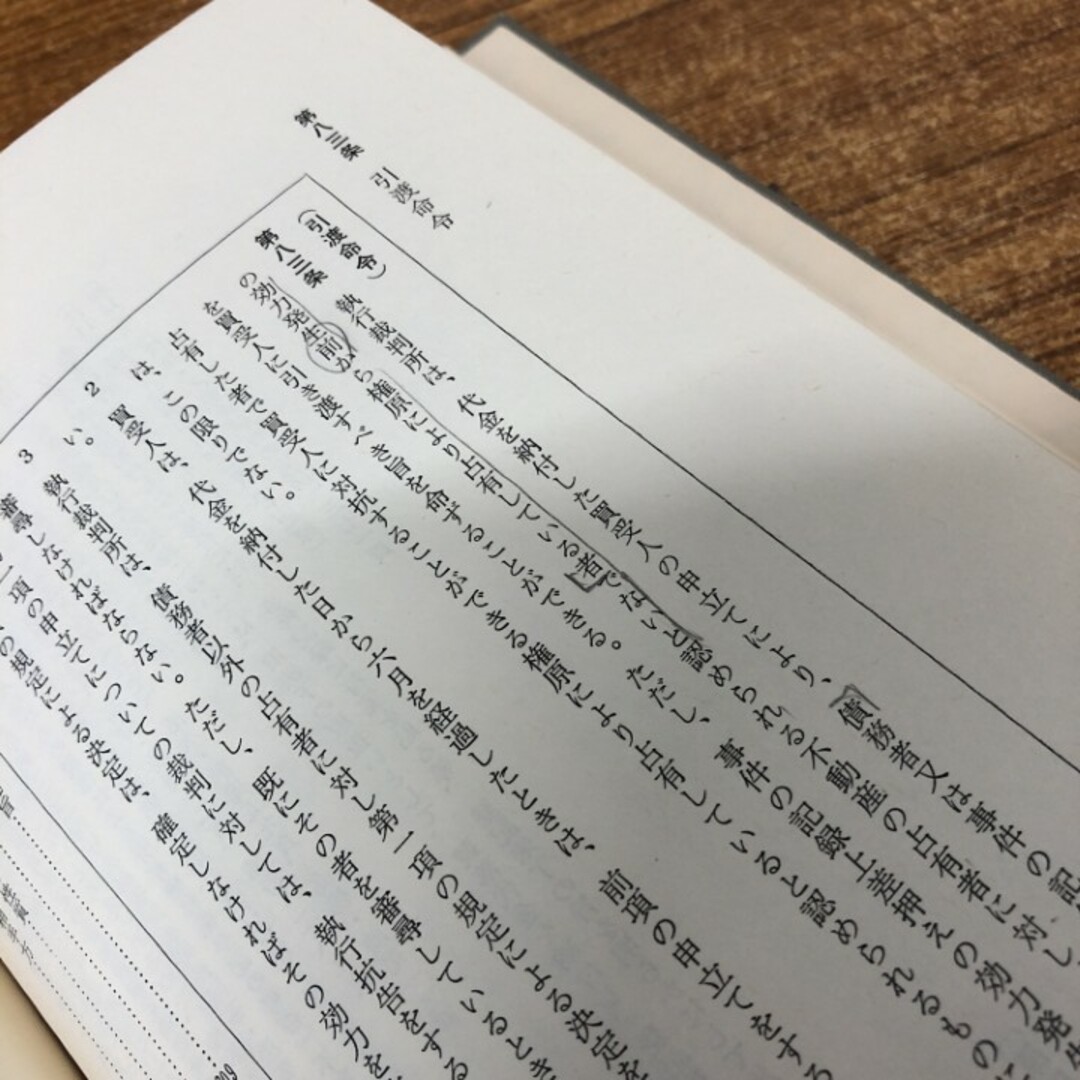 第八三条 引渡命令
(引渡命令)
第八三条 執行裁判所は、代金を納付した買受人の申立てにより、債務者又は事件の記
の効力発生前から権原により占有している者でないと認められる不動産の占有者に対し
を買受人に引き渡すべき旨を命ずることができる。ただし、事件の記録上差押えの効力発
占有した者で買受人に対抗することができる権原により占有していると認められるものに
は、この限りでない。
2 買受人は、代金を納付した日から六月を経過したときは、前項の申立てをする
い。
3 執行裁判所は、債務者以外の占有者に対し第一項の規定による決定を
審尋しなければならない。ただし、既にその者を審尋しているとき
一項の申立てについての裁判に対しては、執行抗告をする
の規定による決定は、確定しなければその効力を